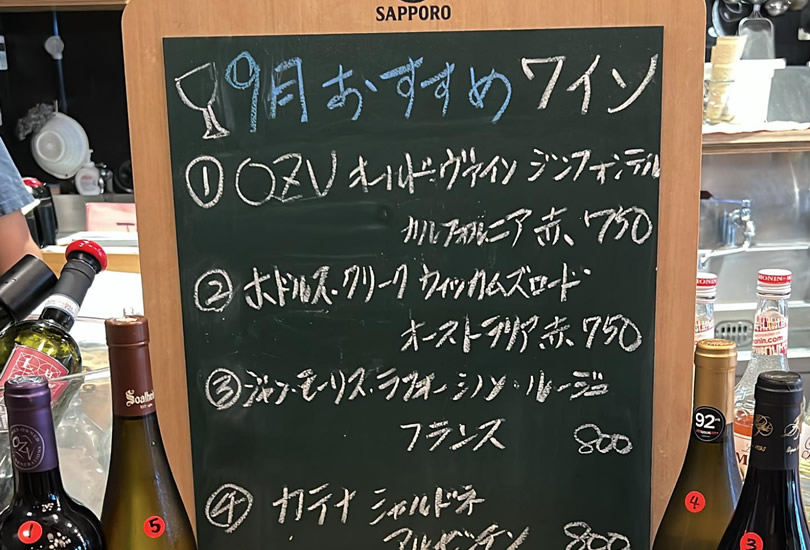 SAPPORO
9月おすすめワイン
① OZV オールド・ヴァイン ジンファンデル
カルフォルニア 赤、750
② ホドルス・クリーク ウィッカムズロード
オーストラリア、赤、750
③ ジャン・モーリス・ラフォー シノン・ルージュ
フランス 800
④ カテナ シャルドネ
アルゼンチン 800
OZV
1
5
92
4
3
MONIN
MONIN
monin.com